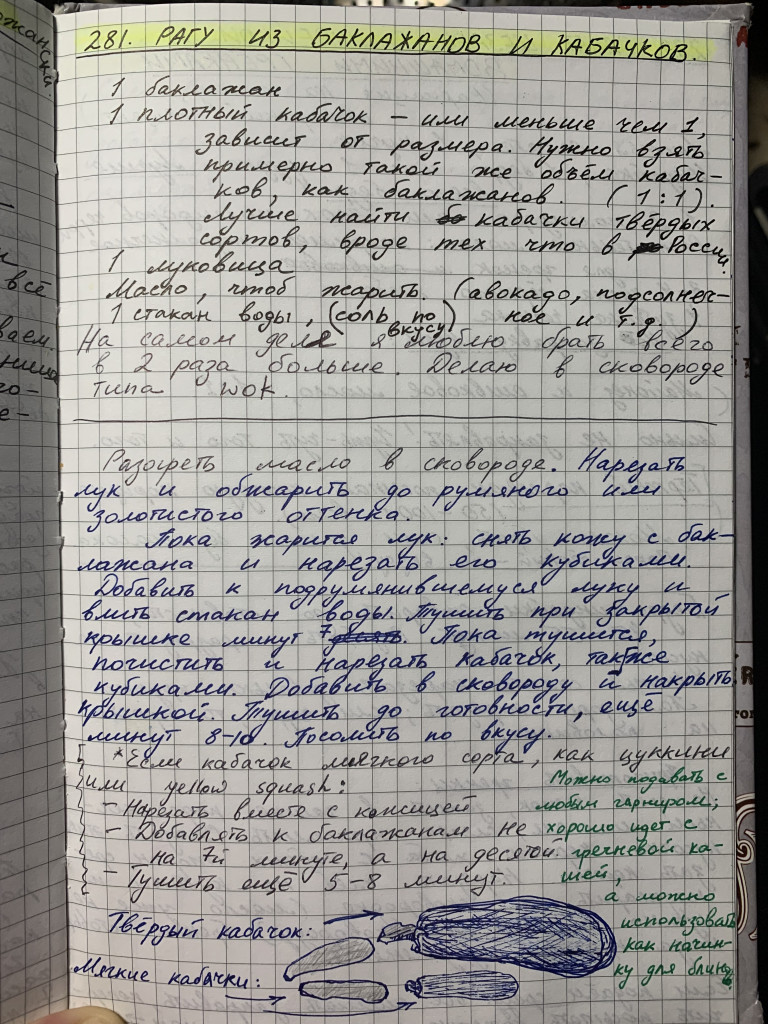 281. РАГУ ИЗ БАКЛАЖАНОВ И КАБАЧКОВ.
1 баклажан
1 плотный кабачок – или меньше чем 1,
зависит от размера. Нужно взять
примерно такой же объём кабач-
ков, как баклажанов. (1:1).
Лучше найти кабачки твёрдых
сортов, вроде тех что в России.
1 луковица
Масло, чтоб жарить. (авокадо, подсолнеч-
ное и т.д.)
1 стакан воды, (соль по вкусу)
На самом деле я люблю брать всего
в 2 раза больше. Делаю в сковороде
типа wok.
Разогреть масло в сковороде. Нарезать
лук и обжарить до румяного или
золотистого оттенка.
Пока жарится лук: снять кожу с бак-
лажана и нарезать его кубиками.
Добавить к подрумянившемуся луку и
влить стакан воды. Тушить при закрытой
крышке минут 7. Пока тушится,
почистить и нарезать кабачок, также
кубиками. Добавить в сковороду и накрыть
крышкой. Тушить до готовности, ещё
минут 8-10. Посолить по вкусу.
*Если кабачок мягкого сорта, как цуккини
или yellow squash:
– Нарезать вместе с кожицей
– Добавлять к баклажанам не
на 7й минуте, а на десятой.
– Тушить ещё 5-8 минут.
Можно подавать с
любым гарниром;
хорошо идет с
гречневой ка-
шей,
а можно
использовать
как начин-
ку для блинов
Твёрдый кабачок:
Мягкие кабачки:
всё
ваем.
го-
е-